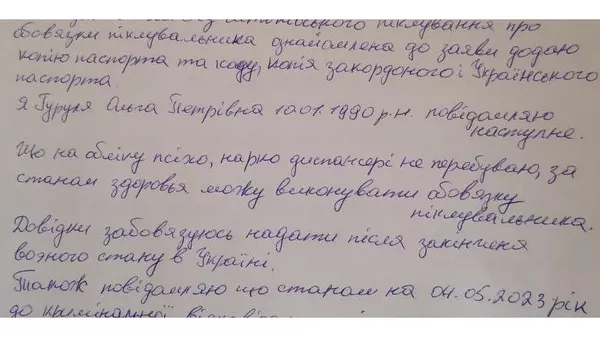 піклування про
обов'язки піклувальника ознайомлена до заяви додаю
копію паспорта та коду, копія закордоного і Українського
паспорта.
Я Гуруля Ольга Петрівна 10.01.1990 р.н. повідомляю
наступне.
Що на обліку психо, нарко диспансері не перебуваю, за
станам здоровья можу виконувати обов'язку
піклувальника.
Довідки забовязуюсь надати після закінченя
воэного стану в Україні.
Також повідомляю що станам на 04.05.2023 рік
до кримінальної